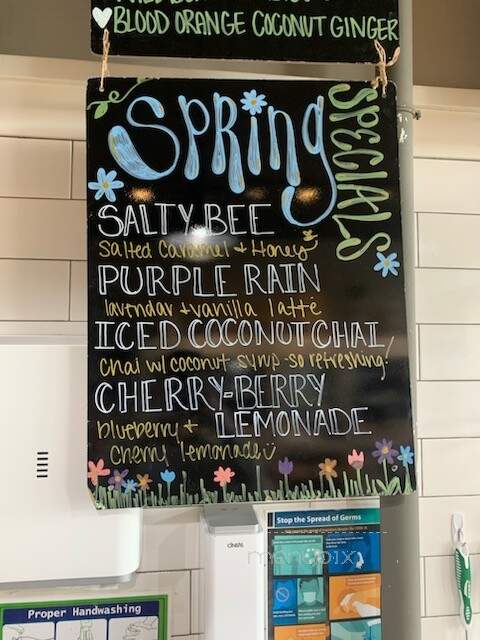 ♥BLOOD ORANGE COCONUT GINGER
SPRiNg
SPECIALS
SALTY BEE
Salted Caramel + Honey
PURPLE RAIN
lavendar + vanilla latte
ICED COCONUT CHAI
Chai w/ coconut syrup - so refreshing!
CHERRY-BERRY
LEMONADE
blueberry +
cherry lemonade
Stop the Spread of Germs
Proper Handwashing
menupix